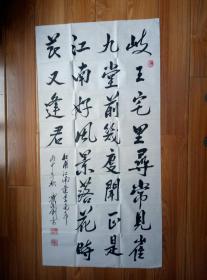 歧王宅里尋常見崔
九堂前幾度聞正是
江南好風景落花時
节又逢君
杜甫江南逢李龜年